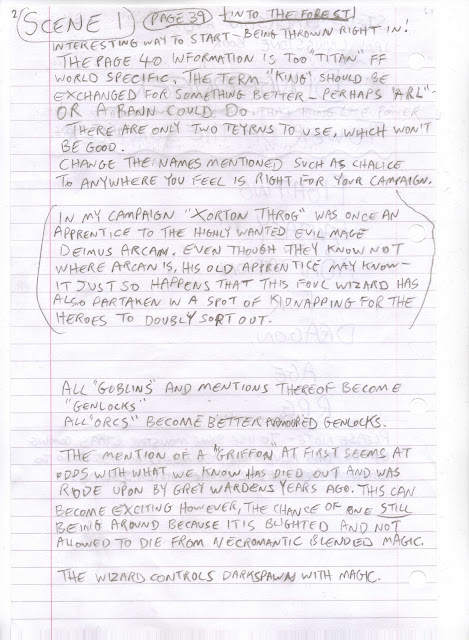 2/ SCENE 1 (PAGE 39) INTO THE FOREST
INTERESTING WAY TO START - BEING THROWN RIGHT IN!
THE PAGE 40 INFORMATION IS TOO "TITAN" FF
WORLD SPECIFIC. THE TERM "KING" SHOULD BE
EXCHANGED FOR SOMETHING BETTER - PERHAPS "ARL" -
OR A BANN COULD DO.
THERE ARE ONLY TWO TEYRNS TO USE, WHICH WON'T
BE GOOD.
CHANGE THE NAMES MENTIONED SUCH AS CHALICE
TO ANYWHERE YOU FEEL IS RIGHT FOR YOUR CAMPAIGN.
IN MY CAMPAIGN "XORTON THROG" WAS ONCE AN
APPRENTICE TO THE HIGHLY WANTED EVIL MAGE
DEIMUS ARCAM. EVEN THOUGH THEY KNOW NOT
WHERE ARCAM IS, HIS OLD APPRENTICE MAY KNOW -
IT JUST SO HAPPENS THAT THIS FOUL WIZARD HAS
ALSO PARTAKEN IN A SPOT OF KIDNAPPING FOR THE
HEROES TO DOUBLY SORT OUT.
ALL "GOBLINS" AND MENTIONS THEREOF BECOME
"GENLOCKS"
ALL "ORCS" BECOME BETTER ARMOURED GENLOCKS.
THE MENTION OF A "GRIFFON" AT FIRST SEEMS AT
ODDS WITH WHAT WE KNOW HAS DIED OUT AND WAS
RODE UPON BY GREY WARDENS YEARS AGO. THIS CAN
BECOME EXCITING HOWEVER, THE CHANCE OF ONE STILL
BEING AROUND BECAUSE IT IS BLIGHTED AND NOT
ALLOWED TO DIE FROM NECROMANTIC BLENDED MAGIC.
THE WIZARD CONTROLS DARKSPAWN WITH MAGIC.